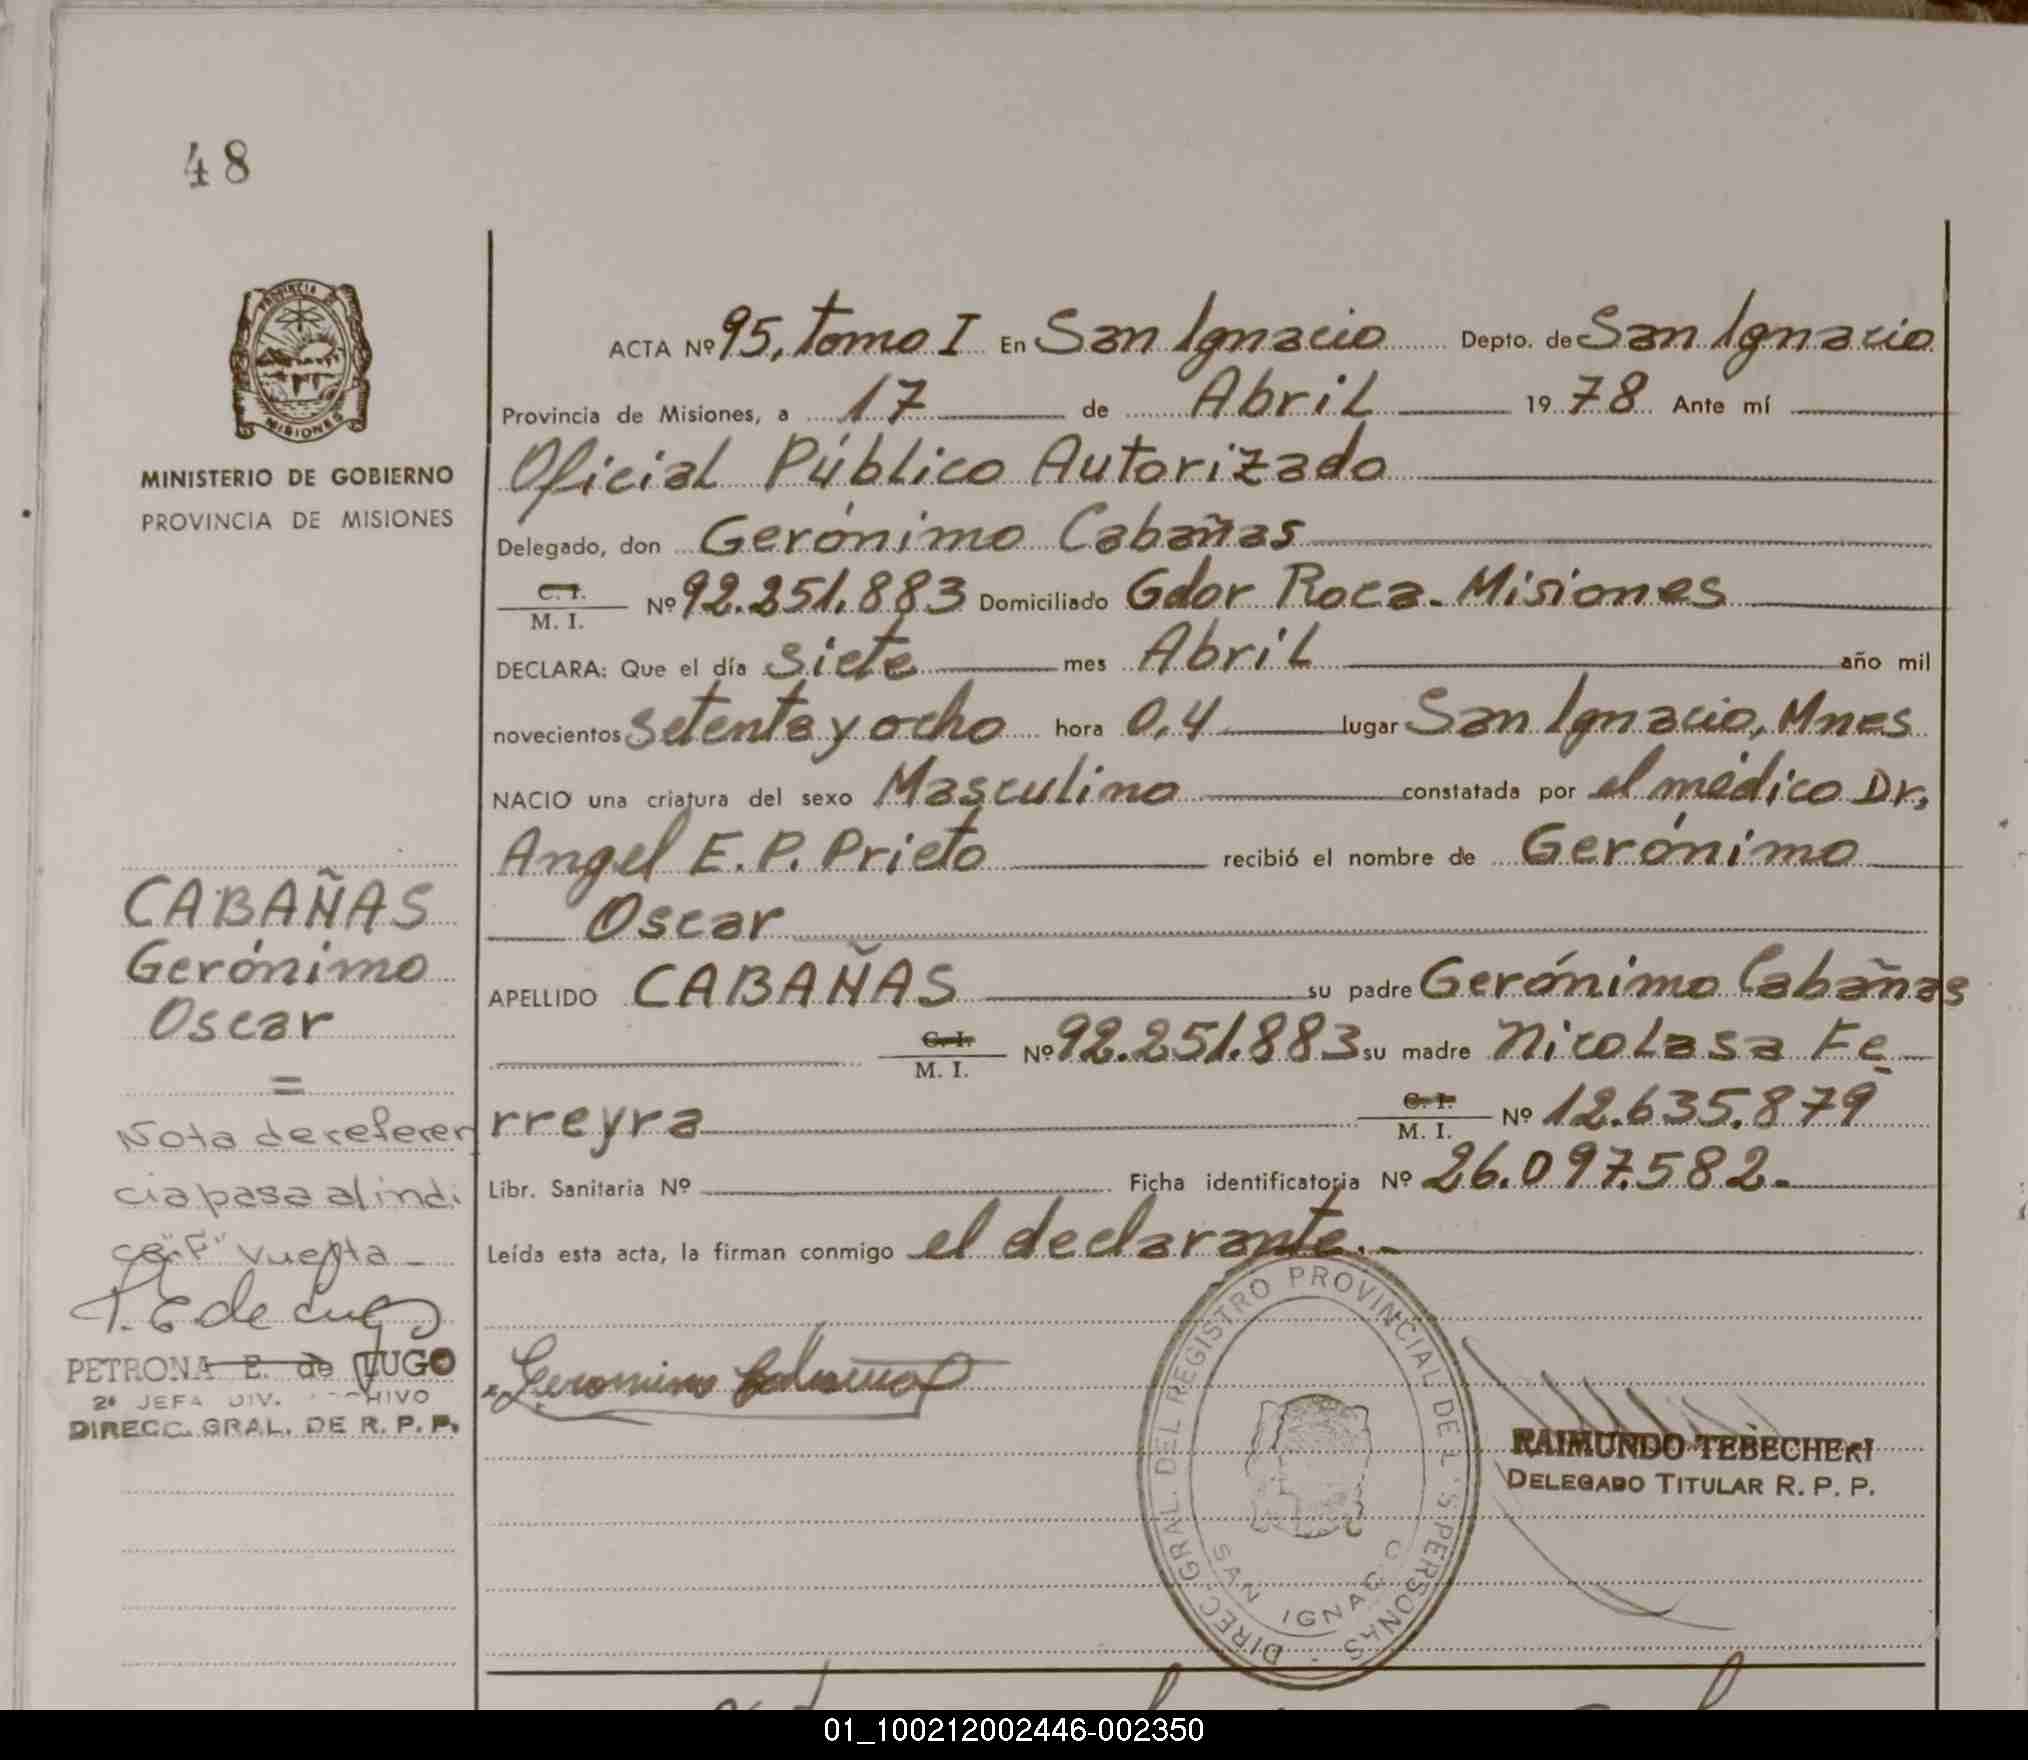 48
PROVINCIA DE
MISIONES
MINISTERIO DE GOBIERNO
PROVINCIA DE MISIONES
ACTA Nº 95, tomo I En San Ignacio Depto. de San Ignacio
Provincia de Misiones, a 17 de Abril 1978 Ante mí
Oficial Público Autorizado
Delegado, don Gerónimo Cabañas
C. I.
M. I. Nº 92.251.883 Domiciliado Gdor Roca. Misiones
DECLARA: Que el día siete mes Abril año mil
novecientos setenta y ocho hora 0,4 lugar San Ignacio, Mnes
NACIO una criatura del sexo Masculino constatada por el médico Dr,
Angel E. P. Prieto recibió el nombre de Gerónimo
Oscar
APELLIDO CABAÑAS su padre Gerónimo Cabañas
C. I.
M. I. Nº 92.251.883 su madre Nicolasa Fe
rreyra C. I.
M. I. Nº 12.635.879
Libr. Sanitaria Nº Ficha identificatoria Nº 26.097.582.-
Leída esta acta, la firman conmigo el declarante.-
CABAÑAS
Gerónimo
Oscar
=
Nota de referen
cia pasa al indi
ce "F" vuelta
PETRONA E. de LUGO
2ª JEFA DIV.
DIRECC. GRAL. DE R. P. P.
Geronimo Cabañas
DIREC. GRAL. DEL REGISTRO PROVINCIAL DE L'S PERSONAS
SAN IGNACIO
RAIMUNDO TEBECHERI
DELEGADO TITULAR R. P. P.
01_100212002446-002350